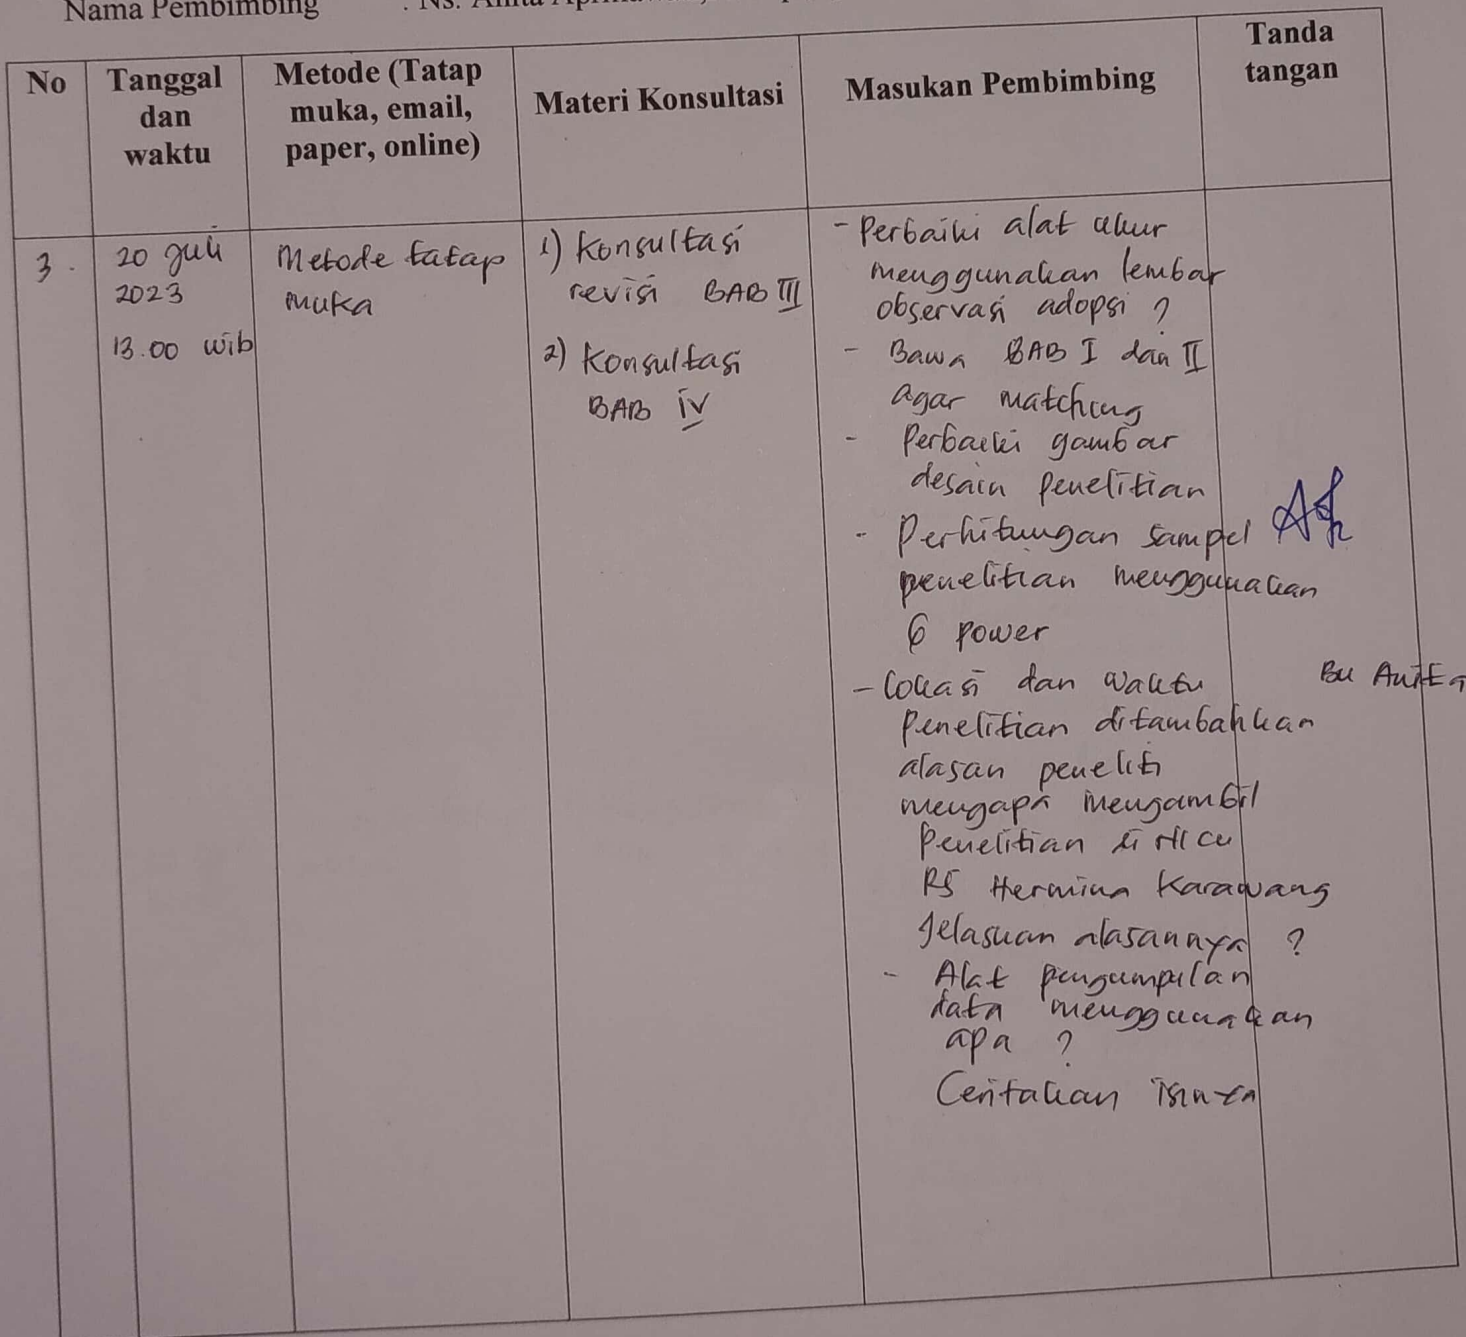 Nama Pembimbing : Ns. Anita
No
Tanggal
dan
waktu
Metode (Tatap
muka, email,
paper, online)
Materi Konsultasi
Masukan Pembimbing
Tanda
tangan
3.
20 Juli
2023
13.00 wib
Metode tatap
muka
1) Konsultasi
revisi BAB III
2) Konsultasi
BAB IV
- Perbaiki alat ukur
menggunakan lembar
observasi adopsi ?
- Bawa BAB I dan II
agar matching
- Perbaiki gambar
desain penelitian
- Perhitungan sampel
penelitian menggunakan
G Power
- Lokasi dan waktu
Penelitian ditambahkan
alasan peneliti
mengapa mengambil
Penelitian di
RS Hermina Karawang
Jelaskan alasannya ?
- Alat pengumpulan
data menggunakan
apa ?
Ceritakan isinya
Bu Anita